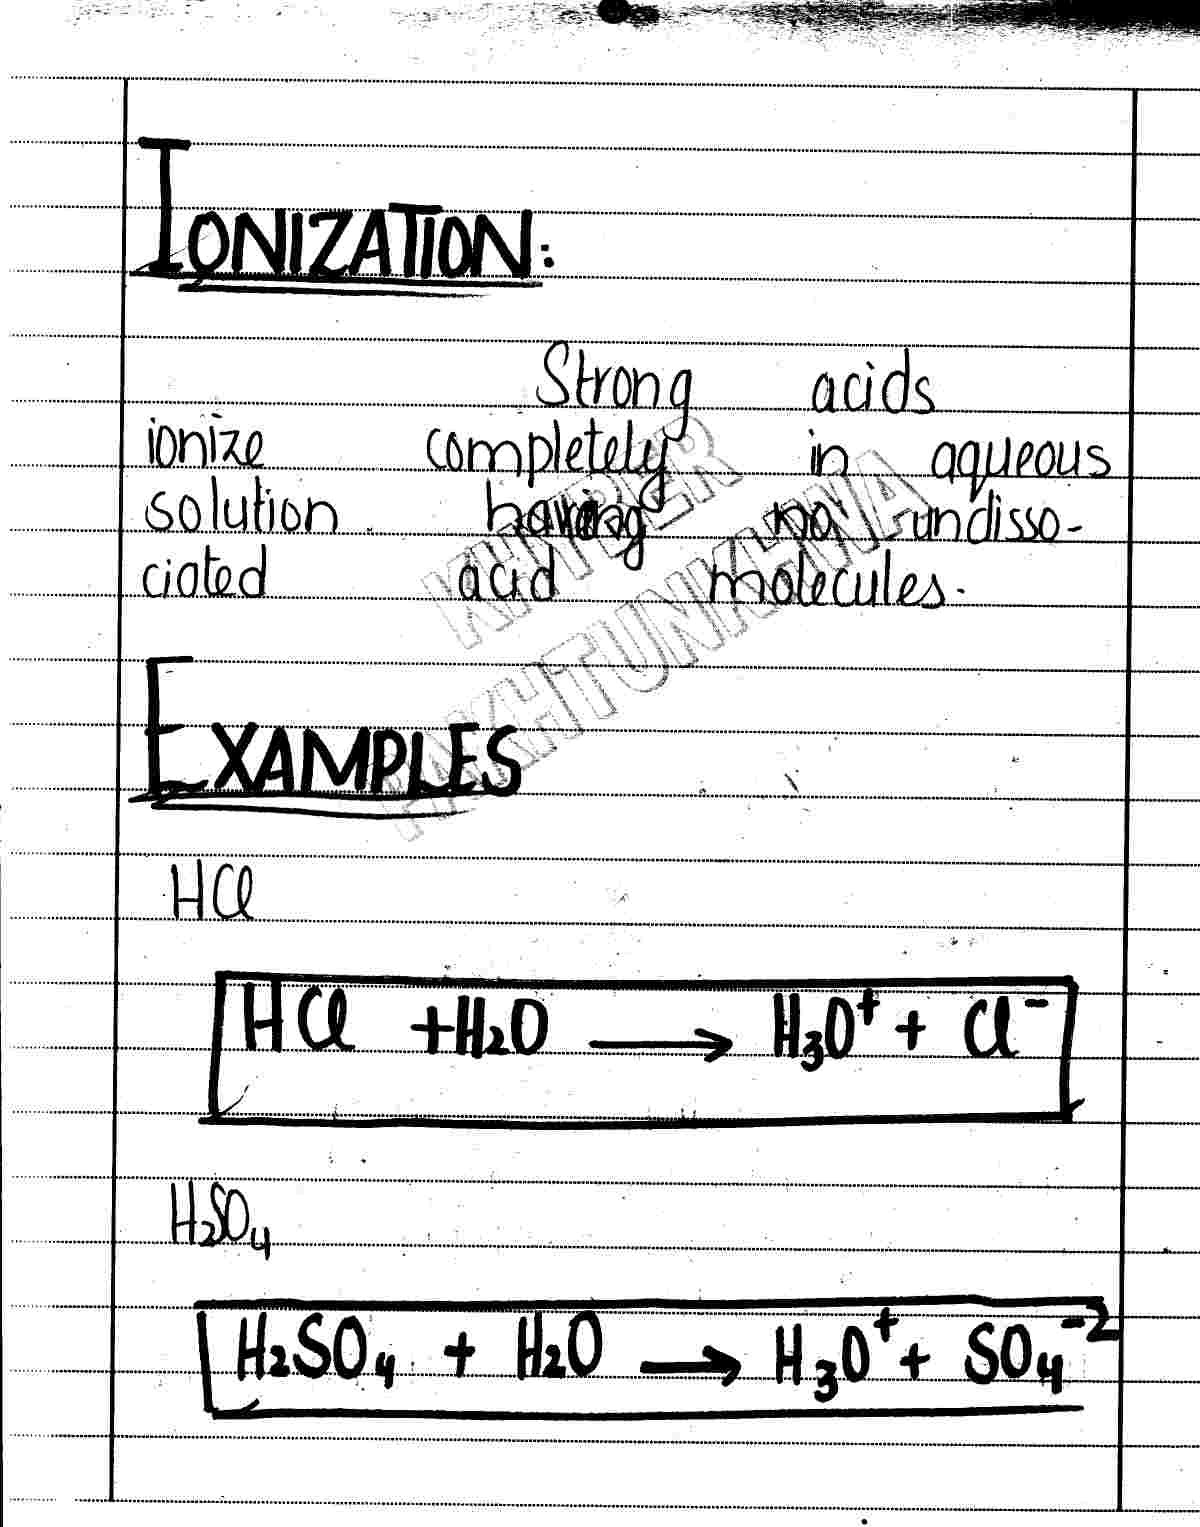 IONIZATION:
Strong acids
ionize completely in aqueous
solution having no undisso-
ciated acid molecules.
KHYBER
PAKHTUNKHWA
EXAMPLES
HCl
HCl + H₂O → H₃O⁺ + Cl⁻
H₂SO₄
H₂SO₄ + H₂O → H₃O⁺ + SO₄⁻²